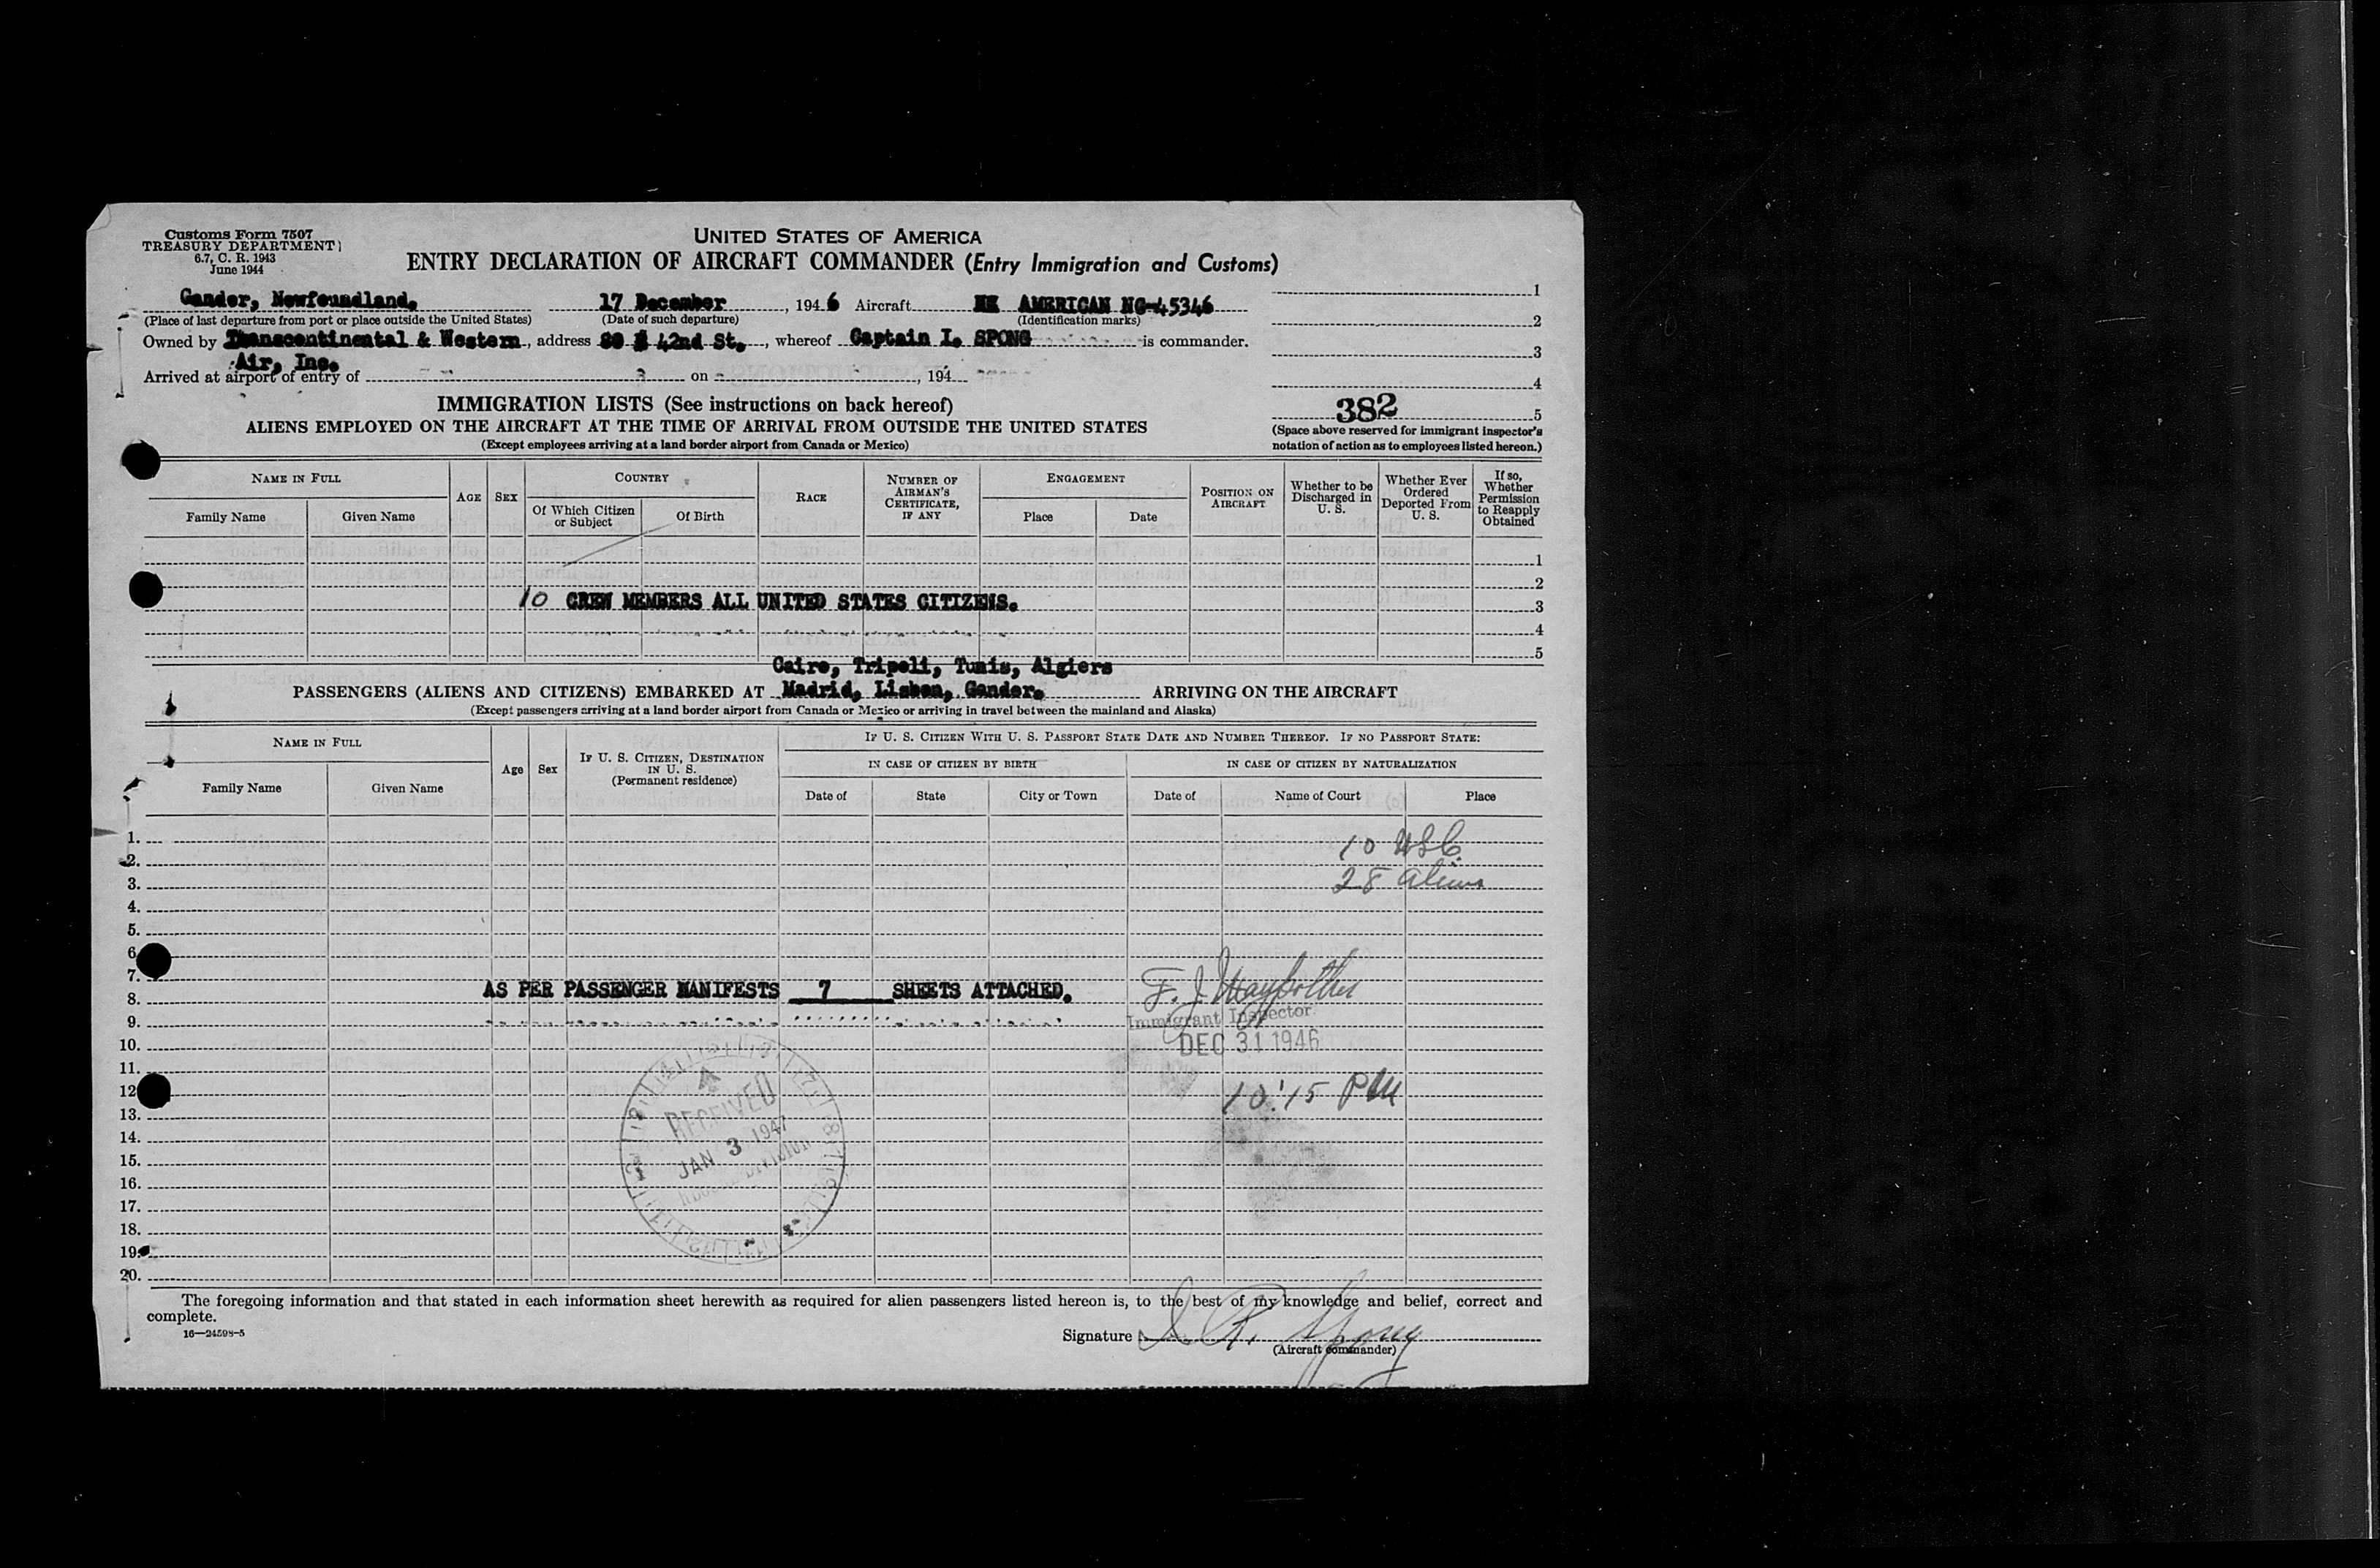 Customs Form 7507
TREASURY DEPARTMENT
6.7, C. R. 1943
June 1944
UNITED STATES OF AMERICA
ENTRY DECLARATION OF AIRCRAFT COMMANDER (Entry Immigration and Customs)
Gander, Newfoundland. 17 December, 1946 Aircraft AMERICAN NC-45346
(Place of last departure from port or place outside the United States) (Date of such departure) (Identification marks)
Owned by Transcontinental & Western, address 42nd St., whereof Captain I. SPONG is commander.
Air, Inc.
Arrived at airport of entry of on , 194
1
2
3
4
382 5
(Space above reserved for immigrant inspector's
notation of action as to employees listed hereon.)
IMMIGRATION LISTS (See instructions on back hereof)
ALIENS EMPLOYED ON THE AIRCRAFT AT THE TIME OF ARRIVAL FROM OUTSIDE THE UNITED STATES
(Except employees arriving at a land border airport from Canada or Mexico)
NAME IN FULL AGE SEX COUNTRY RACE NUMBER OF AIRMAN'S CERTIFICATE, IF ANY ENGAGEMENT POSITION ON AIRCRAFT Whether to be Discharged in U. S. Whether Ever Ordered Deported From U. S. If so, Whether Permission to Reapply Obtained
Family Name Given Name Of Which Citizen or Subject Of Birth Place Date
1
2
10 CREW MEMBERS ALL UNITED STATES CITIZENS. 3
4
5
Cairo, Tripoli, Tunis, Algiers
PASSENGERS (ALIENS AND CITIZENS) EMBARKED AT Madrid, Lisbon, Gander. ARRIVING ON THE AIRCRAFT
(Except passengers arriving at a land border airport from Canada or Mexico or arriving in travel between the mainland and Alaska)
NAME IN FULL Age Sex IF U. S. CITIZEN, DESTINATION IN U. S. (Permanent residence) IF U. S. CITIZEN WITH U. S. PASSPORT STATE DATE AND NUMBER THEREOF. IF NO PASSPORT STATE:
IN CASE OF CITIZEN BY BIRTH IN CASE OF CITIZEN BY NATURALIZATION
Family Name Given Name Date of State City or Town Date of Name of Court Place
1. 10 USC
2.
3. 28 Aliens
4.
5.
6.
7.
8. AS PER PASSENGER MANIFESTS 7 SHEETS ATTACHED. F. J.
9. Immigrant Inspector
10. DEC 31 1946
11.
12. 10:15 PM
RECEIVED
13.
14. JAN 3 1947
15.
16.
17.
18.
19.
20.
The foregoing information and that stated in each information sheet herewith as required for alien passengers listed hereon is, to the best of my knowledge and belief, correct and
complete.
16—24598-5
Signature I. R. Spong
(Aircraft commander)